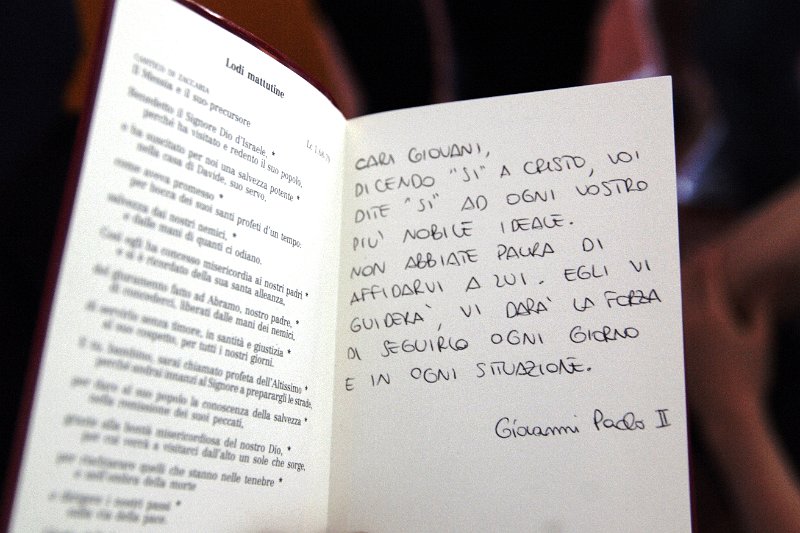 Lodi mattutine
CANTICO DI ZACCARIA
Il Messia e il suo precursore
Lc 1, 68-79
Benedetto il Signore Dio d'Israele, *
perché ha visitato e redento il suo popolo,
e ha suscitato per noi una salvezza potente *
nella casa di Davide, suo servo,
come aveva promesso *
per bocca dei suoi santi profeti d'un tempo:
salvezza dai nostri nemici, *
e dalle mani di quanti ci odiano.
Così egli ha concesso misericordia ai nostri padri *
e si è ricordato della sua santa alleanza,
del giuramento fatto ad Abramo, nostro padre, *
di concederci, liberati dalle mani dei nemici,
di servirlo senza timore, in santità e giustizia *
al suo cospetto, per tutti i nostri giorni.
E tu, bambino, sarai chiamato profeta dell'Altissimo *
perché andrai innanzi al Signore a preparargli le strade,
per dare al suo popolo la conoscenza della salvezza *
nella remissione dei suoi peccati,
grazie alla bontà misericordiosa del nostro Dio, *
per cui verrà a visitarci dall'alto un sole che sorge,
per rischiarare quelli che stanno nelle tenebre *
e nell'ombra della morte
e dirigere i nostri passi *
sulla via della pace.
CARI GIOVANI,
DICENDO "SI" A CRISTO, VOI
DITE "SI" AD OGNI VOSTRO
PIU' NOBILE IDEALE.
NON ABBIATE PAURA DI
AFFIDARVI A LUI. EGLI VI
GUIDERA', VI DARA' LA FORZA
DI SEGUIRLO OGNI GIORNO
E IN OGNI SITUAZIONE.
Giovanni Paolo II